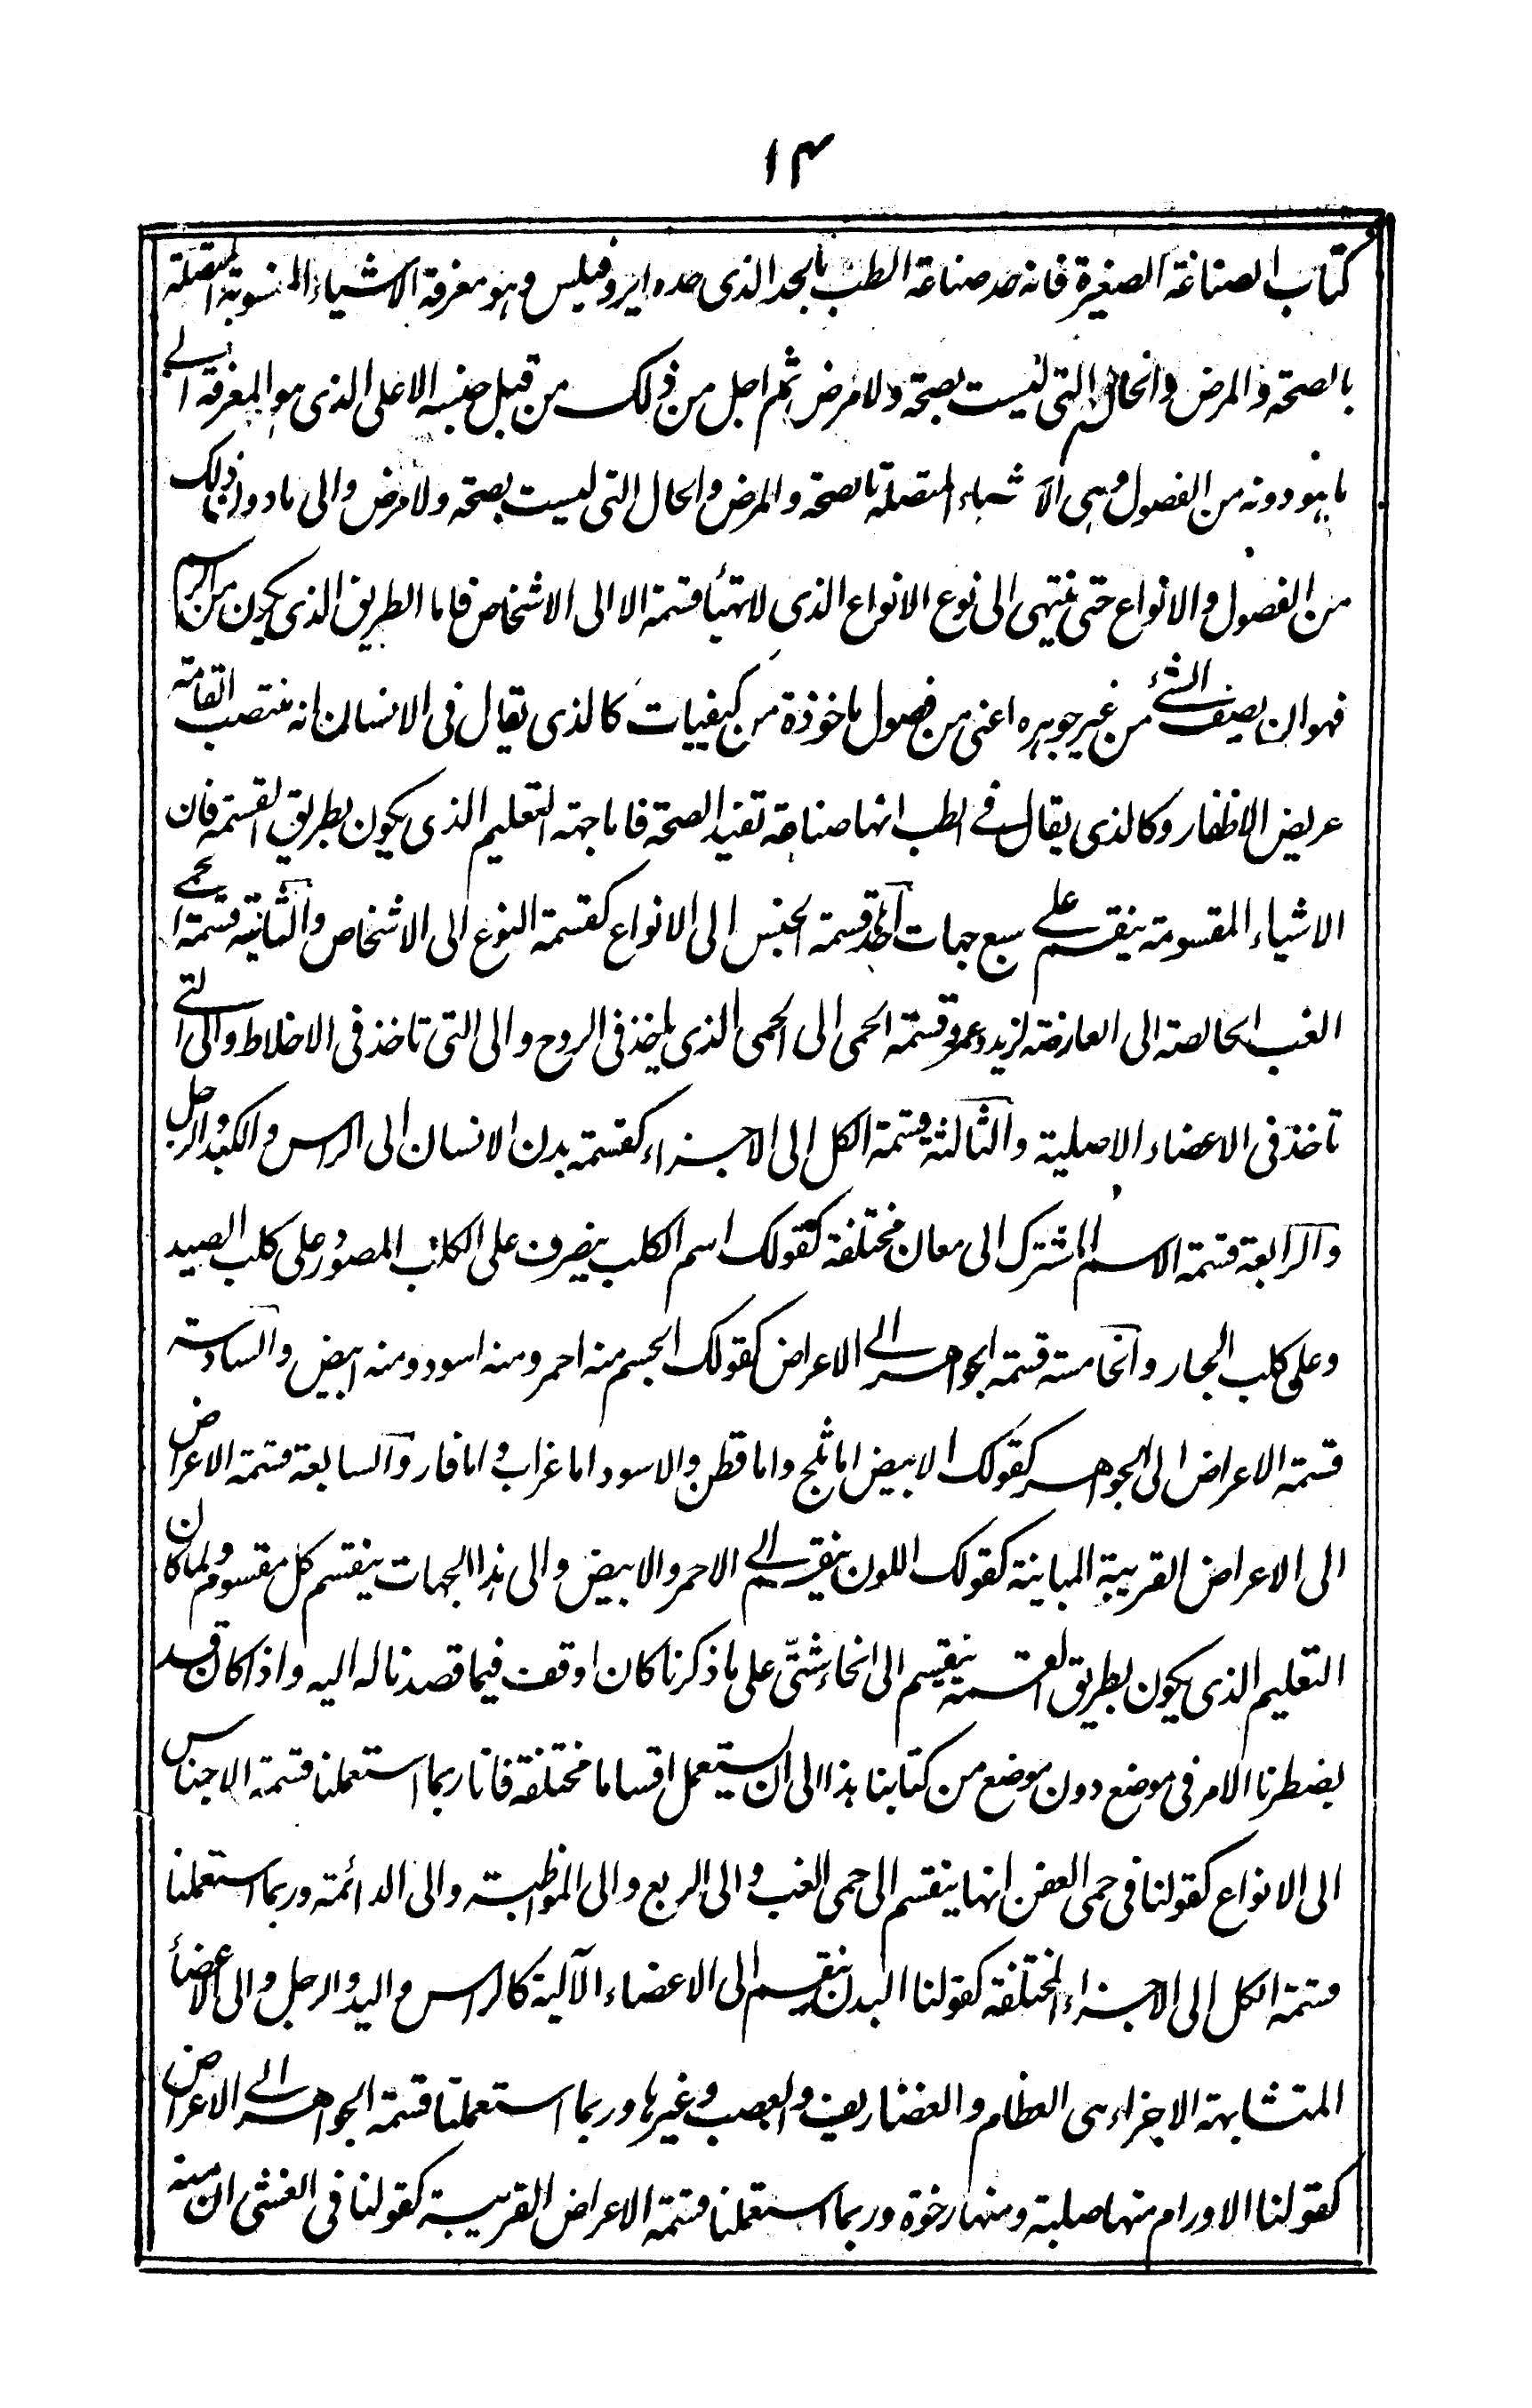 ١٣
كتاب الصناعة الصغيرة فانه حد صناعة الطب بالحد الذى حده ايروفيلس وهو معرفة الاشياء المنسوبة المتصلة
بالصحة والمرض والحال التى ليست بصحة ولا مرض ثم اجل من ذلك من قبل جنسه الاعلى الذى هو المعرفة الى
ما هو دونه من الفصول وهى الاشياء المتصلة بالصحة والمرض والحال التى ليست بصحة ولا مرض والى ما دون ذلك
من الفصول والانواع حتى ينتهى الى نوع الانواع الذى لا تهيأ قسمة الا الى الاشخاص فاما الطريق الذى يكون من الرسم
فهو ان يصف الشئ من غير جوهره اعنى من فصول ماخوذة من كيفيات كالذى يقال فى الانسان انه منتصب القامة
عريض الاظفار وكالذى يقال فى الطب انها صناعة تفيد الصحة فاما جهة التعليم الذى يكون بطريق القسمة فان
الاشياء المقسومة ينقسم على سبع جهات احدها قسمة الجنس الى الانواع كقسمة النوع الى الاشخاص والثانية قسمة الحمى
الغب الخالصة الى العارضة لزيد وعمرو قسمة الحمى الى الحمى الذى ياخذ فى الروح والى التى تاخذ فى الاخلاط والى التى
تاخذ فى الاعضاء الاصلية والثالثة قسمة الكل الى الاجزاء كقسمة بدن الانسان الى الراس والكبد والرجل
والرابعة قسمة الاسم المشترك الى معان مختلفة كقولك اسم الكلب يصرف على الكلب المصور وعلى كلب الصيد
وعلى كلب الجار والخامسة قسمة الجواهر الى الاعراض كقولك الجسم منه احمر ومنه اسود ومنه ابيض والسادسة
قسمة الاعراض الى الجواهر كقولك الابيض اما ثلج واما قطن والاسود اما غراب واما قار والسابعة قسمة الاعراض
الى الاعراض القريبة المباينة كقولك اللون ينقسم الى الاحمر والابيض والى هذا الجهات ينقسم كل مقسوم ولما كان
التعليم الذى يكون بطريق القسمة ينقسم الى انحاء شتّى على ما ذكرنا كان اوقف فيما قصدنا له اليه واذا كان قد
يضطرنا الامر فى موضع دون موضع من كتابنا هذا الى ان يستعمل اقساما مختلفة فانا ربما استعملنا قسمة الاجناس
الى الانواع كقولنا فى حمى العفن انها ينقسم الى حمى الغب والى الربع والى المواظبة والى الدائمة وربما استعملنا
قسمة الكل الى الاجزاء المختلفة كقولنا البدن ينقسم الى الاعضاء الآلية كالراس واليد والرجل والى الاعضأ
المتشابهة الاجزاء هى العظام والغضاريف والعصب وغيرها وربما استعملنا قسمة الجواهر الى الاعراض
كقولنا الاورام منها صلبة ومنها رخوة وربما استعملنا قسمة الاعراض القريبة كقولنا فى الغشى ان منه